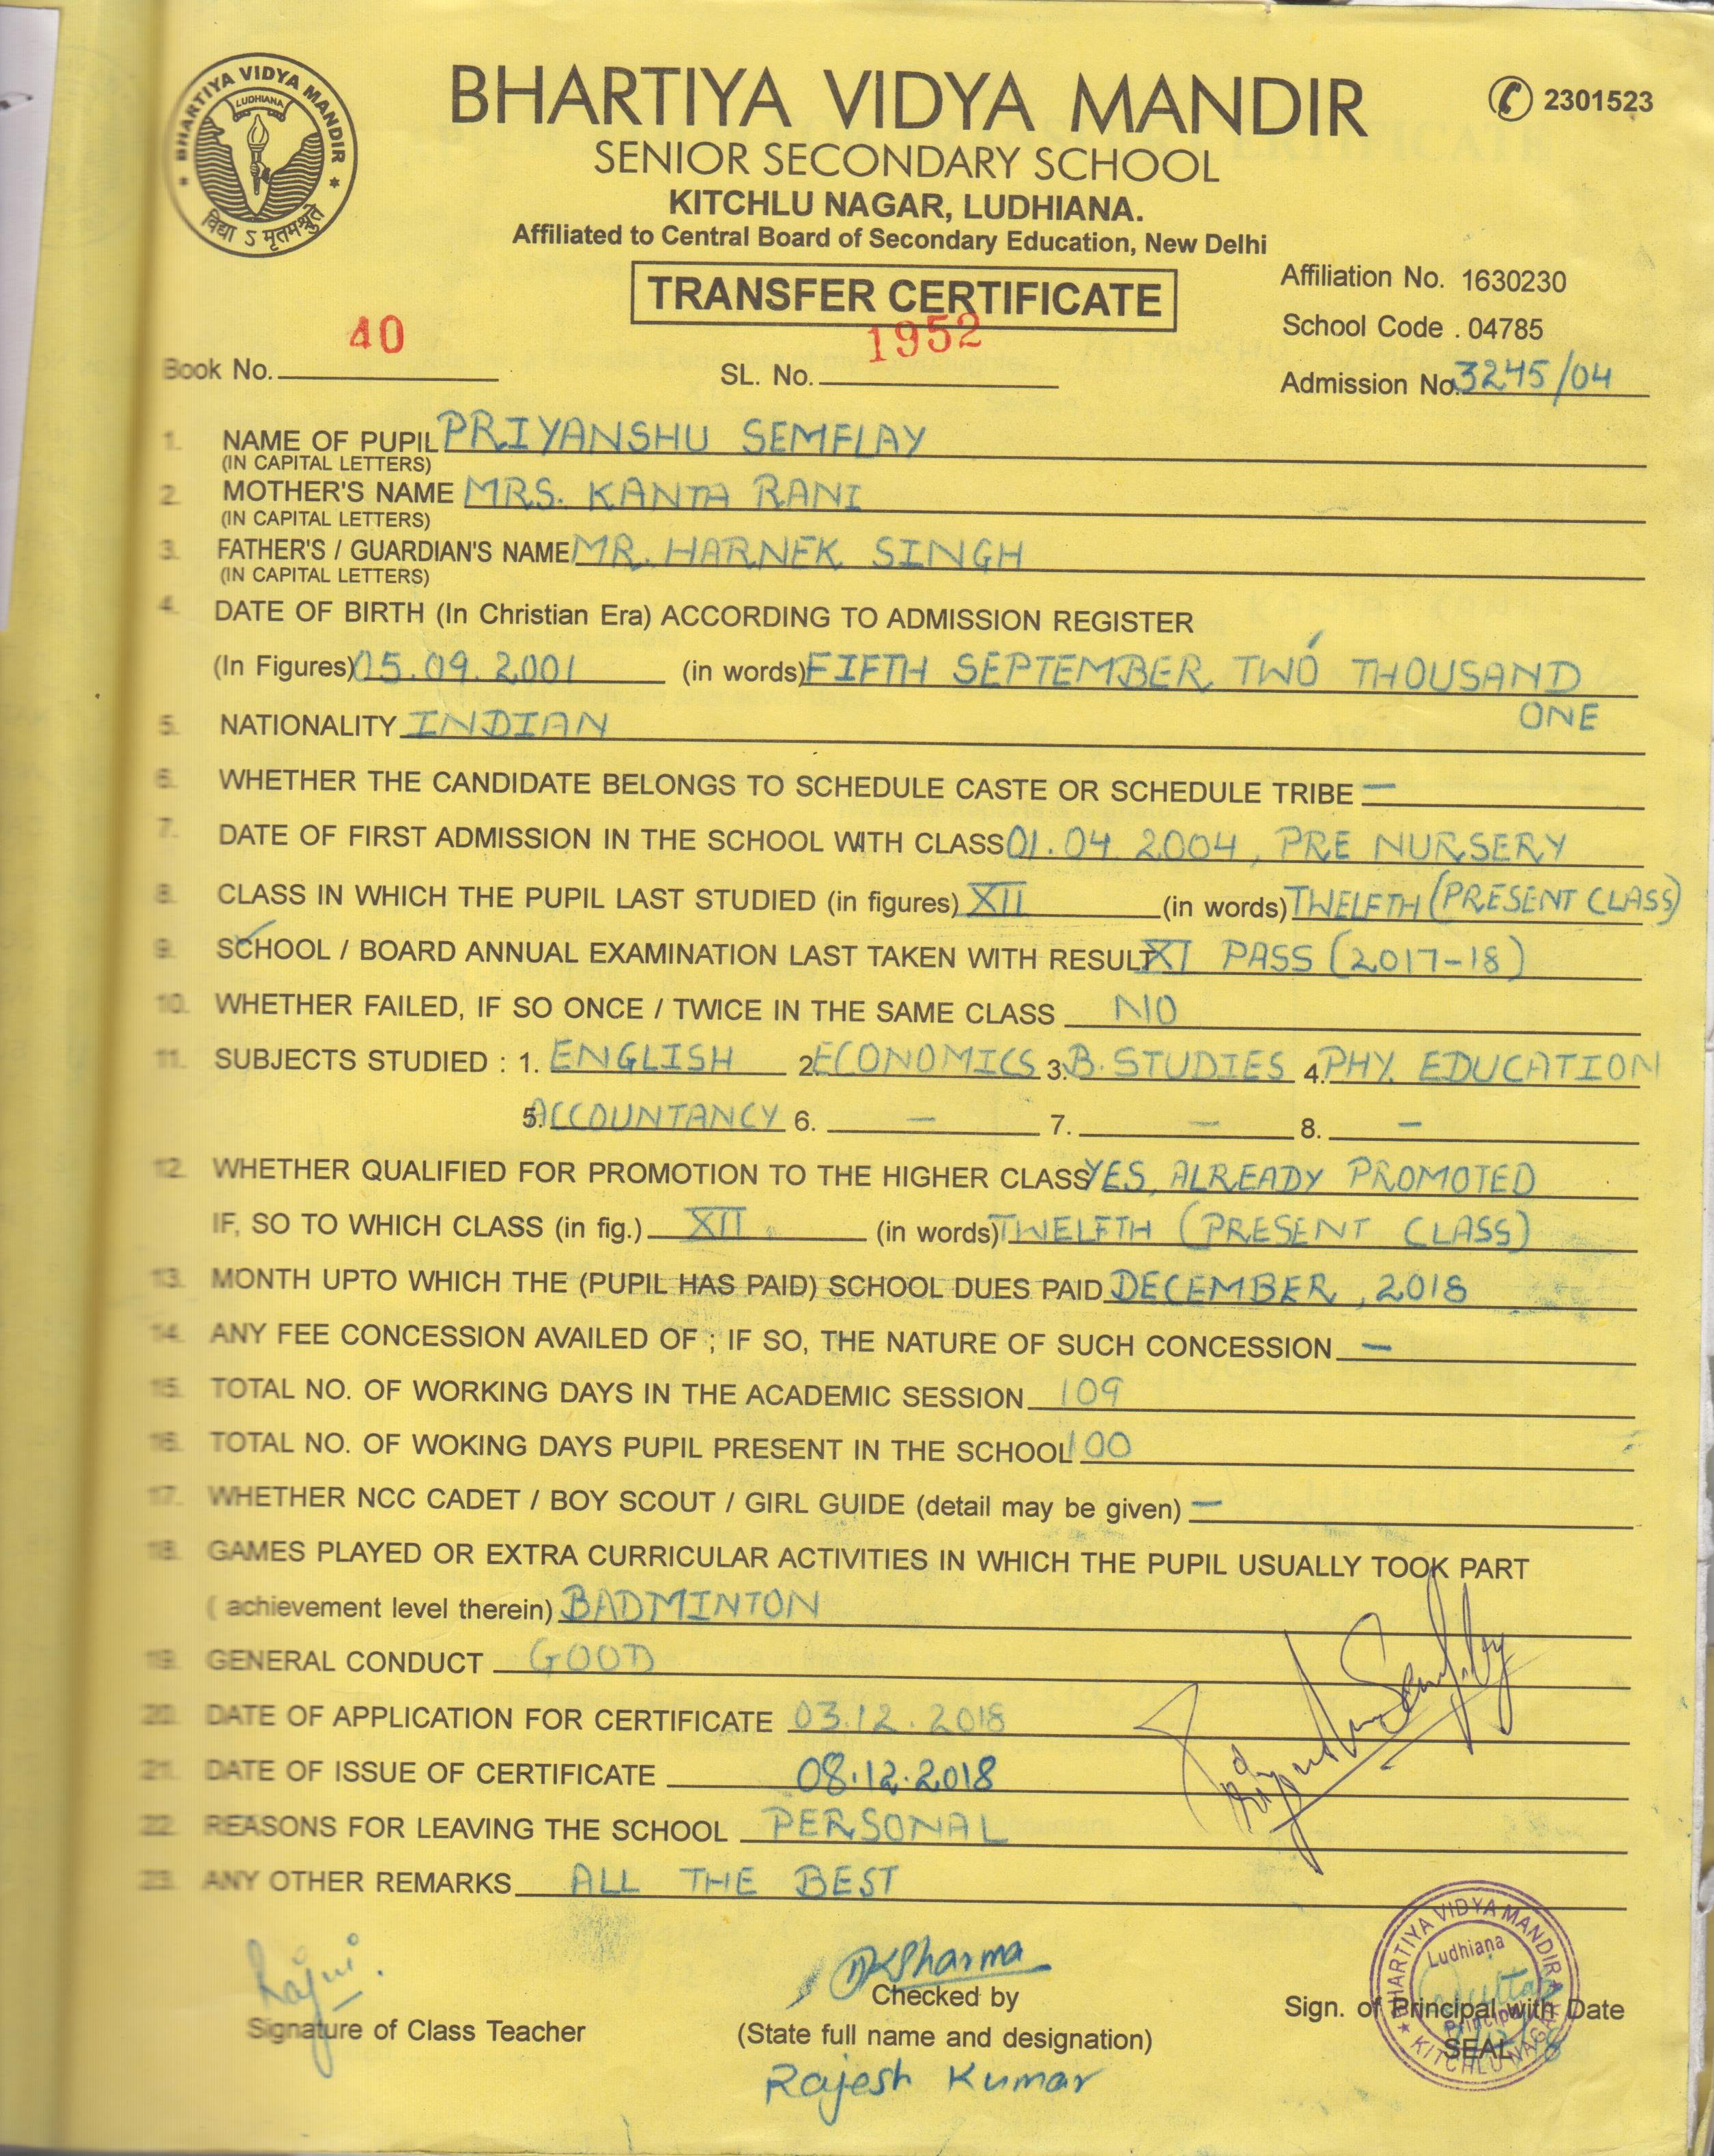 BHARTIYA VIDYA MANDIR
LUDHIANA
विद्या ऽ मृतमश्नुते
BHARTIYA VIDYA MANDIR
2301523
SENIOR SECONDARY SCHOOL
KITCHLU NAGAR, LUDHIANA.
Affiliated to Central Board of Secondary Education, New Delhi
TRANSFER CERTIFICATE
Affiliation No. 1630230
School Code . 04785
Book No. 40 SL. No. 1952 Admission No. 3245/04
1. NAME OF PUPIL PRIYANSHU SEMFLAY
(IN CAPITAL LETTERS)
2. MOTHER'S NAME MRS. KANTA RANI
(IN CAPITAL LETTERS)
3. FATHER'S / GUARDIAN'S NAME MR. HARNEK SINGH
(IN CAPITAL LETTERS)
4. DATE OF BIRTH (In Christian Era) ACCORDING TO ADMISSION REGISTER
(In Figures) 05.09.2001 (in words) FIFTH SEPTEMBER TWO THOUSAND
ONE
5. NATIONALITY INDIAN
6. WHETHER THE CANDIDATE BELONGS TO SCHEDULE CASTE OR SCHEDULE TRIBE –
7. DATE OF FIRST ADMISSION IN THE SCHOOL WITH CLASS 01.04.2004, PRE NURSERY
8. CLASS IN WHICH THE PUPIL LAST STUDIED (in figures) XII (in words) TWELFTH (PRESENT CLASS)
9. SCHOOL / BOARD ANNUAL EXAMINATION LAST TAKEN WITH RESULT XI PASS (2017-18)
10. WHETHER FAILED, IF SO ONCE / TWICE IN THE SAME CLASS NO
11. SUBJECTS STUDIED : 1. ENGLISH 2. ECONOMICS 3. B. STUDIES 4. PHY. EDUCATION
5. ACCOUNTANCY 6. – 7. – 8. –
12. WHETHER QUALIFIED FOR PROMOTION TO THE HIGHER CLASS YES, ALREADY PROMOTED
IF, SO TO WHICH CLASS (in fig.) XII (in words) TWELFTH (PRESENT CLASS)
13. MONTH UPTO WHICH THE (PUPIL HAS PAID) SCHOOL DUES PAID DECEMBER, 2018
14. ANY FEE CONCESSION AVAILED OF ; IF SO, THE NATURE OF SUCH CONCESSION –
15. TOTAL NO. OF WORKING DAYS IN THE ACADEMIC SESSION 109
16. TOTAL NO. OF WOKING DAYS PUPIL PRESENT IN THE SCHOOL 100
17. WHETHER NCC CADET / BOY SCOUT / GIRL GUIDE (detail may be given) –
18. GAMES PLAYED OR EXTRA CURRICULAR ACTIVITIES IN WHICH THE PUPIL USUALLY TOOK PART
( achievement level therein) BADMINTON
19. GENERAL CONDUCT GOOD
20. DATE OF APPLICATION FOR CERTIFICATE 03.12.2018
21. DATE OF ISSUE OF CERTIFICATE 08.12.2018
Priyanshu Semflay
22. REASONS FOR LEAVING THE SCHOOL PERSONAL
23. ANY OTHER REMARKS ALL THE BEST
Rajni
DKSharma
Checked by
Signature of Class Teacher
(State full name and designation)
Rajesh Kumar
Sign. of Principal with Date
SEAL
BHARTIYA VIDYA MANDIR
Ludhiana
Principal
KITCHLU NAGAR